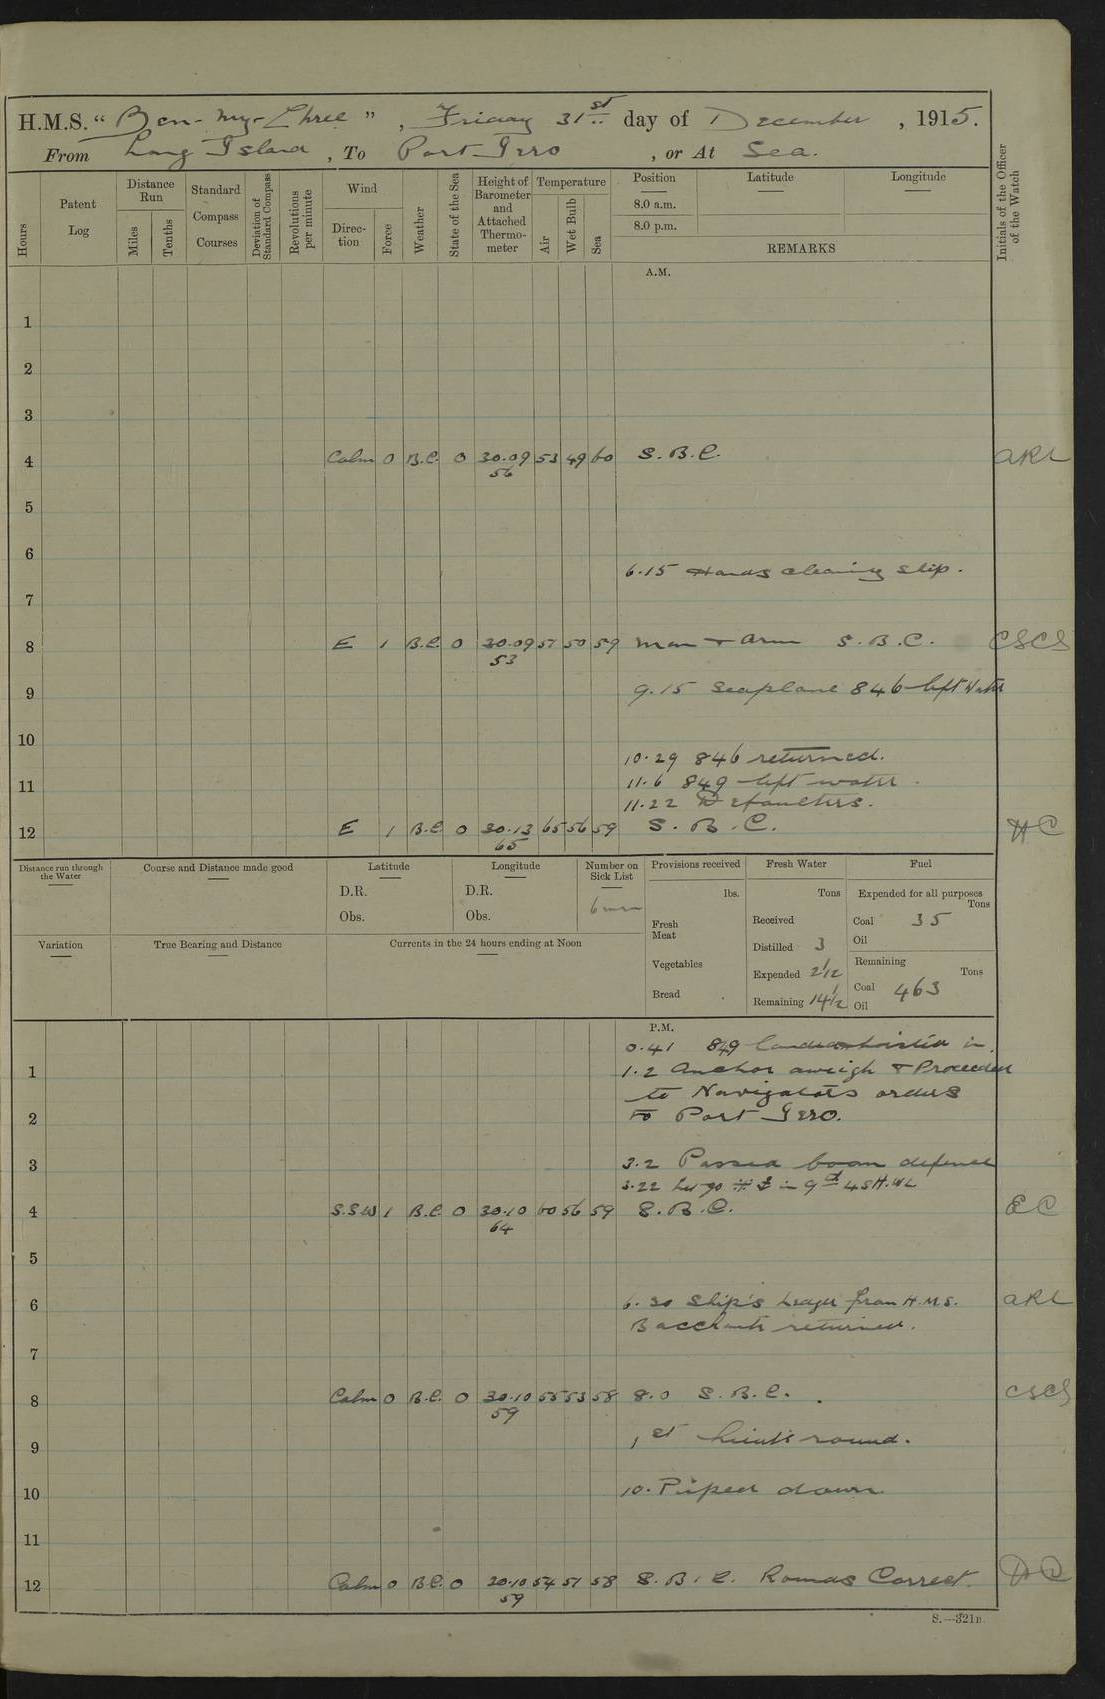 H.M.S. “ Ben-my-Chree ” , Friday 31st day of December , 1915.
From Long Island , To Port Iero , or At Sea.
Hours
Patent Log
Distance Run
Miles
Tenths
Standard Compass Courses
Deviation of Standard Compass
Revolutions per minute
Wind
Direction
Force
Weather
State of the Sea
Height of Barometer and Attached Thermometer
Temperature
Air
Wet Bulb
Sea
Position
8.0 a.m.
8.0 p.m.
Latitude
Longitude
REMARKS
Initials of the Officer of the Watch
A.M.
1
2
3
4 Calm 0 B.C. 0 30.09 56 53 49 60 S.B.C. ARL
5
6
6.15 Hands cleaning ship.
7
8 E 1 B.C. 0 30.09 53 51 50 59 man & arm S.B.C. CSCS
9 9.15 Seaplane 846 left Water
10
10.29 846 returned.
11 11.6 849 left water.
11.22 Defaulters.
12 E 1 B.C. 0 30.13 65 65 56 59 S.B.C. HC
Distance run through the Water
Course and Distance made good
Latitude
D.R.
Obs.
Longitude
D.R.
Obs.
Number on Sick List
6 men
Provisions received
lbs.
Fresh Meat
Vegetables
Bread
Fresh Water
Tons
Received
Distilled 3
Expended 2 1/2
Remaining 14 1/2
Fuel
Expended for all purposes
Tons
Coal 35
Oil
Remaining
Tons
Coal 463
Oil
Variation
True Bearing and Distance
Currents in the 24 hours ending at Noon
P.M.
0.41 849 hoisted in.
1 1.2 Anchor aweigh & Proceeded
to Navigators orders
2 to Port Iero.
3 3.2 Passed boom defence
3.22 Let go in
4 S.S.W 1 B.C. 0 30.10 64 60 56 59 S.B.C. EC
5
6 6.30 Ship's from H.M.S. ARL
Bacchante returned.
7
8 Calm 0 B.C. 0 30.10 59 55 53 58 8.0 S.B.C. CSCS
9 1st Lieut's round.
10 10. Piped down
11
12 Calm 0 B.C. 0 30.10 59 54 51 58 S.B.C. Rounds Correct. HC
S.—321B.